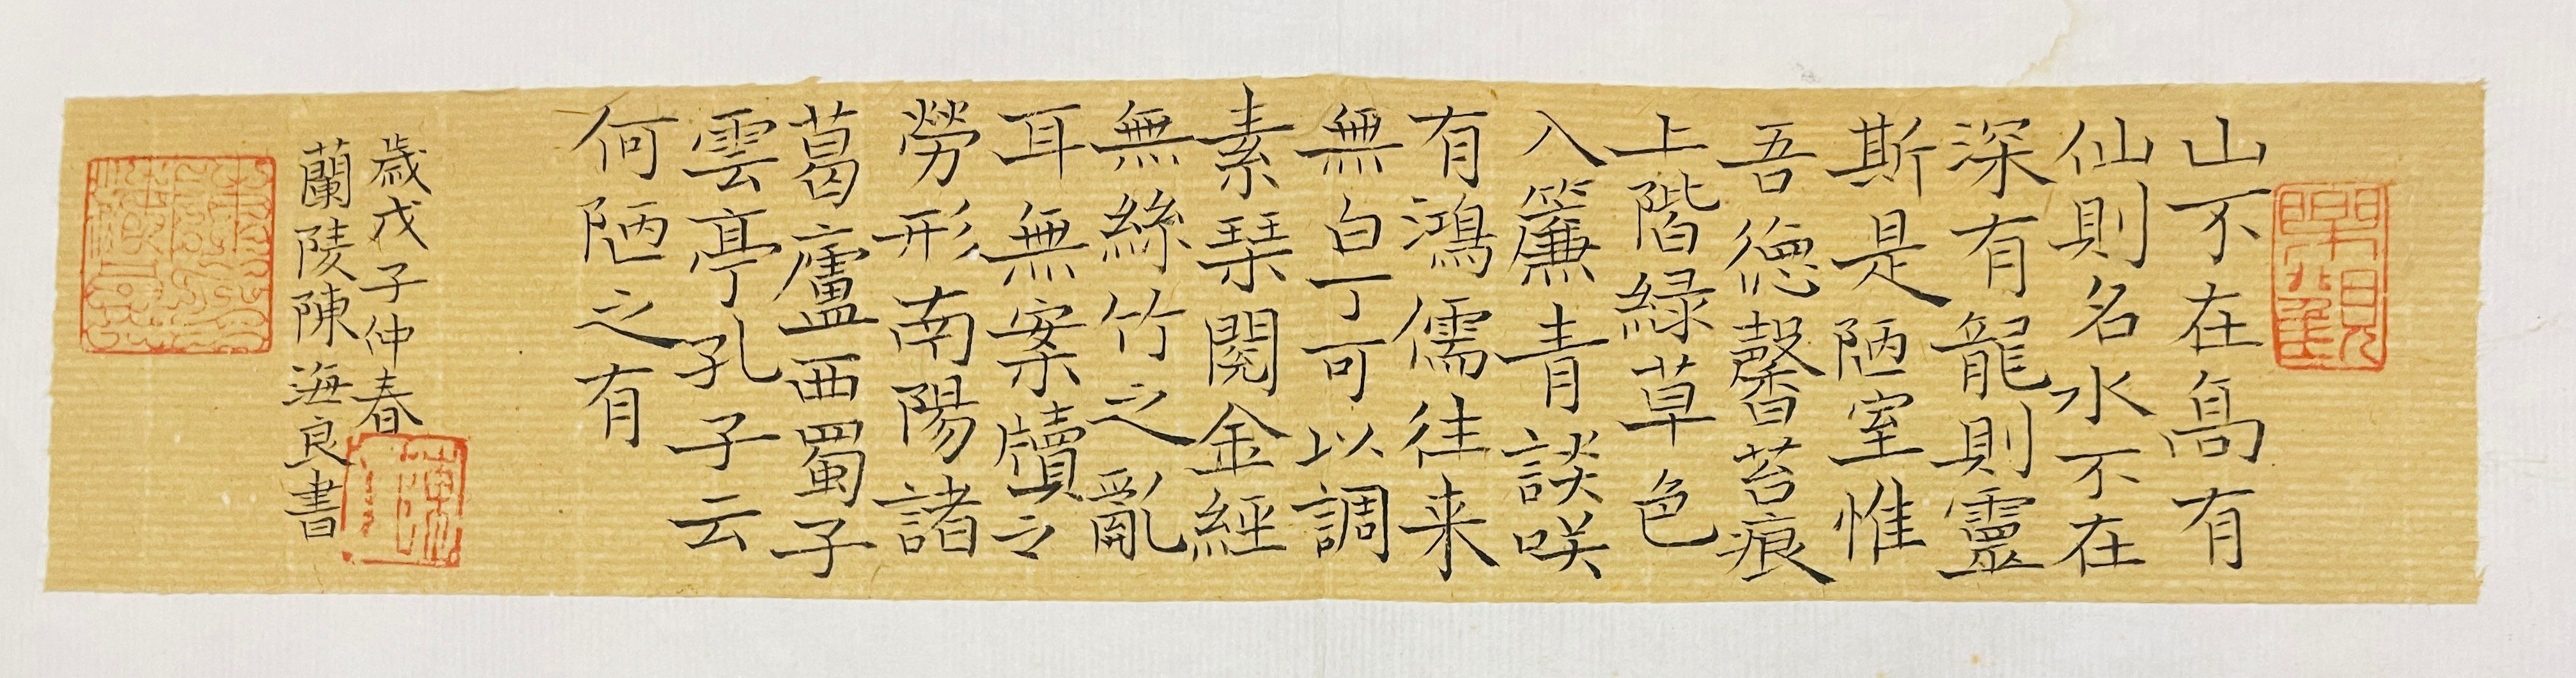 山不在高有
仙則名水不在
深有龍則靈
斯是陋室惟
吾德馨苔痕
上階緑草色
入簾青談咲
有鴻儒往来
無白丁可以調
素琹閱金經
無絲竹之亂
耳無案牘之
勞形南陽諸
葛廬西蜀子
雲亭孔子云
何陋之有
歲戊子仲春
蘭陵陳海良書